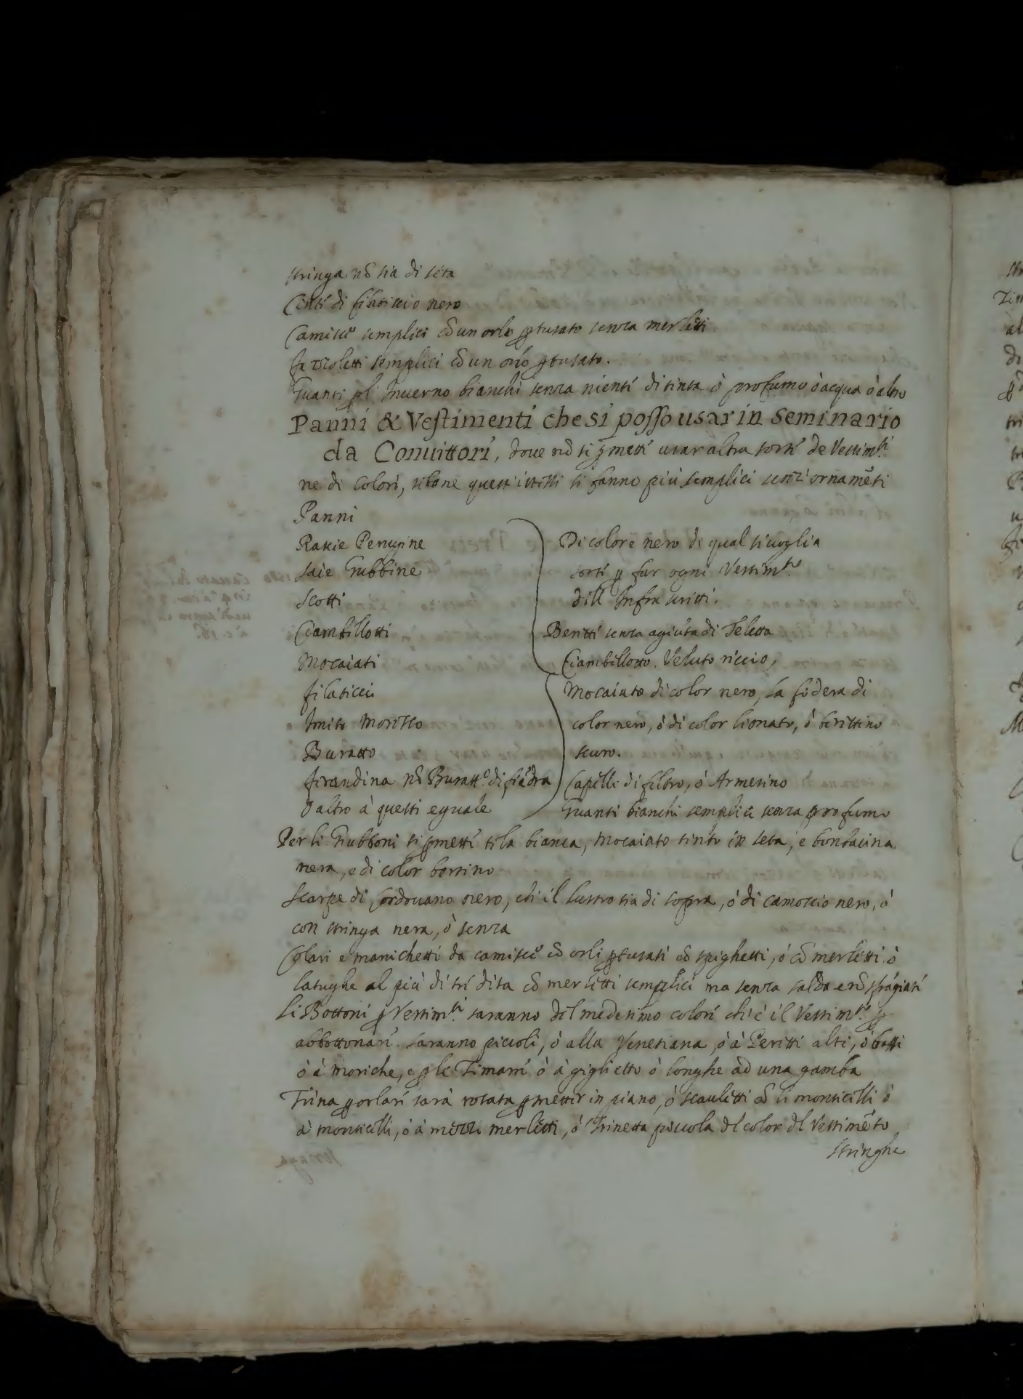 stringa nõ sia di seta
Centi di filaticcio nero
Camisce semplici cõ un orlo ptusato senza merletti
semplici cõ un orlo ptusato.
Guanti pl Inverno bianchi senza nienti di tinta ò profumo ò acqua ò altro
Panni & Vestimenti che si posso usar in seminario
da Convittori, dove nõ si pmetti usar altra sorte de Vestimti
ne di Colori, sebene questi istessi si fanno più semplici senz' ornamẽti
Panni
Rassie Perugine
Saie Gubbine
Scotti
Ciambillotti
Mocaiati
filaticcii
Buratto
ferandina nõ Buratto di fiãdra
ò altro à questi eguale
Di colore nero di qual si voglia
sorti p far ogni Vestimto
dell' Infrascritti.
Beritti senza agiuta di Teletta
Ciambillotto. Veluto riccio,
Mocaiato di color nero, la fodera di
color nero, ò di color lionato, ò birittino
scuro.
Capelli di filtro, ò Armesino
Guanti bianchi semplici senza profumo
Per li Giubboni si pmetti tela bianca, Mocaiato tinto in seta, e bombacina
nera, e di color
Scarpe di Cordovano nero, chi il lustro sia di sopra, ò di camoscio nero, ò
con stringa nera, ò senza
Colari e manichetti da camisce cõ orli ptusati cõ spighetti, ò cõ merletti ò
latughe al più di tri dita cõ merletti semplici ma senza salda e nõ
Li Bottoni p Vestimti saranno del medesimo colori chi è il Vestimto p
abbottonari saranno piccioli, ò alla Venetiana, ò à Peritti alti, ò bassi
ò à moriche, e p le Zimarri ò à giglietto ò longhe ad una gamba
Trina p orlari sarà rosata p mettir in piano, ò scaulitti cõ li monticilli ò
à monticelli, ò à mezzi merletti, ò Trinetta piccola dl color dl Vestimẽto
stringhe